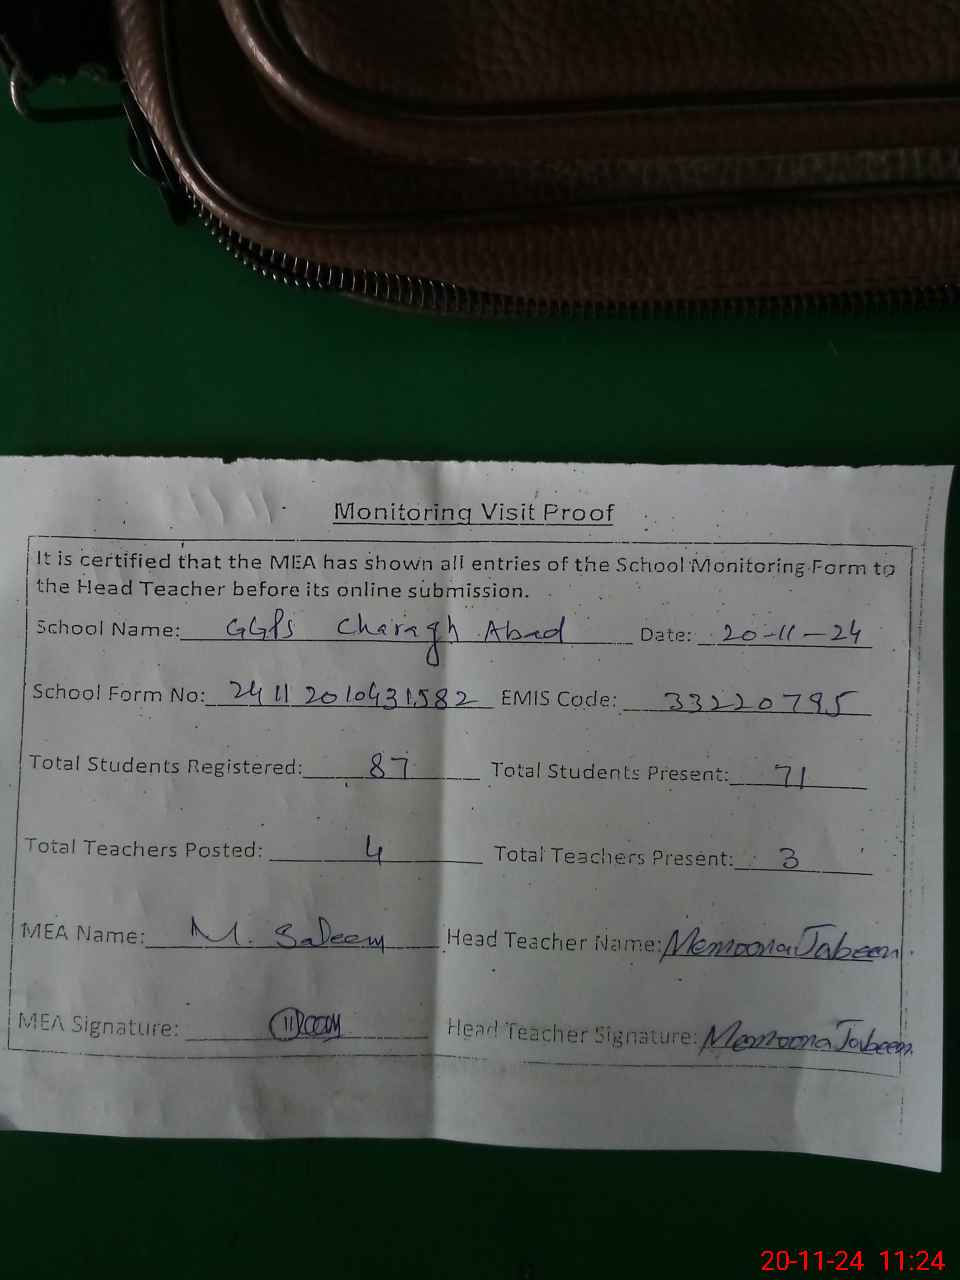 Monitoring Visit Proof
It is certified that the MEA has shown all entries of the School Monitoring Form to
the Head Teacher before its online submission.
School Name: GGPS Charagh Abad Date: 20-11-24
School Form No: 24112010431582 EMIS Code: 33220795
Total Students Registered: 87 Total Students Present: 71
Total Teachers Posted: 4 Total Teachers Present: 3
MEA Name: M. Saleem Head Teacher Name: Memoona Jabeen.
MEA Signature: Head Teacher Signature: Memoona Jabeen.
20-11-24 11:24